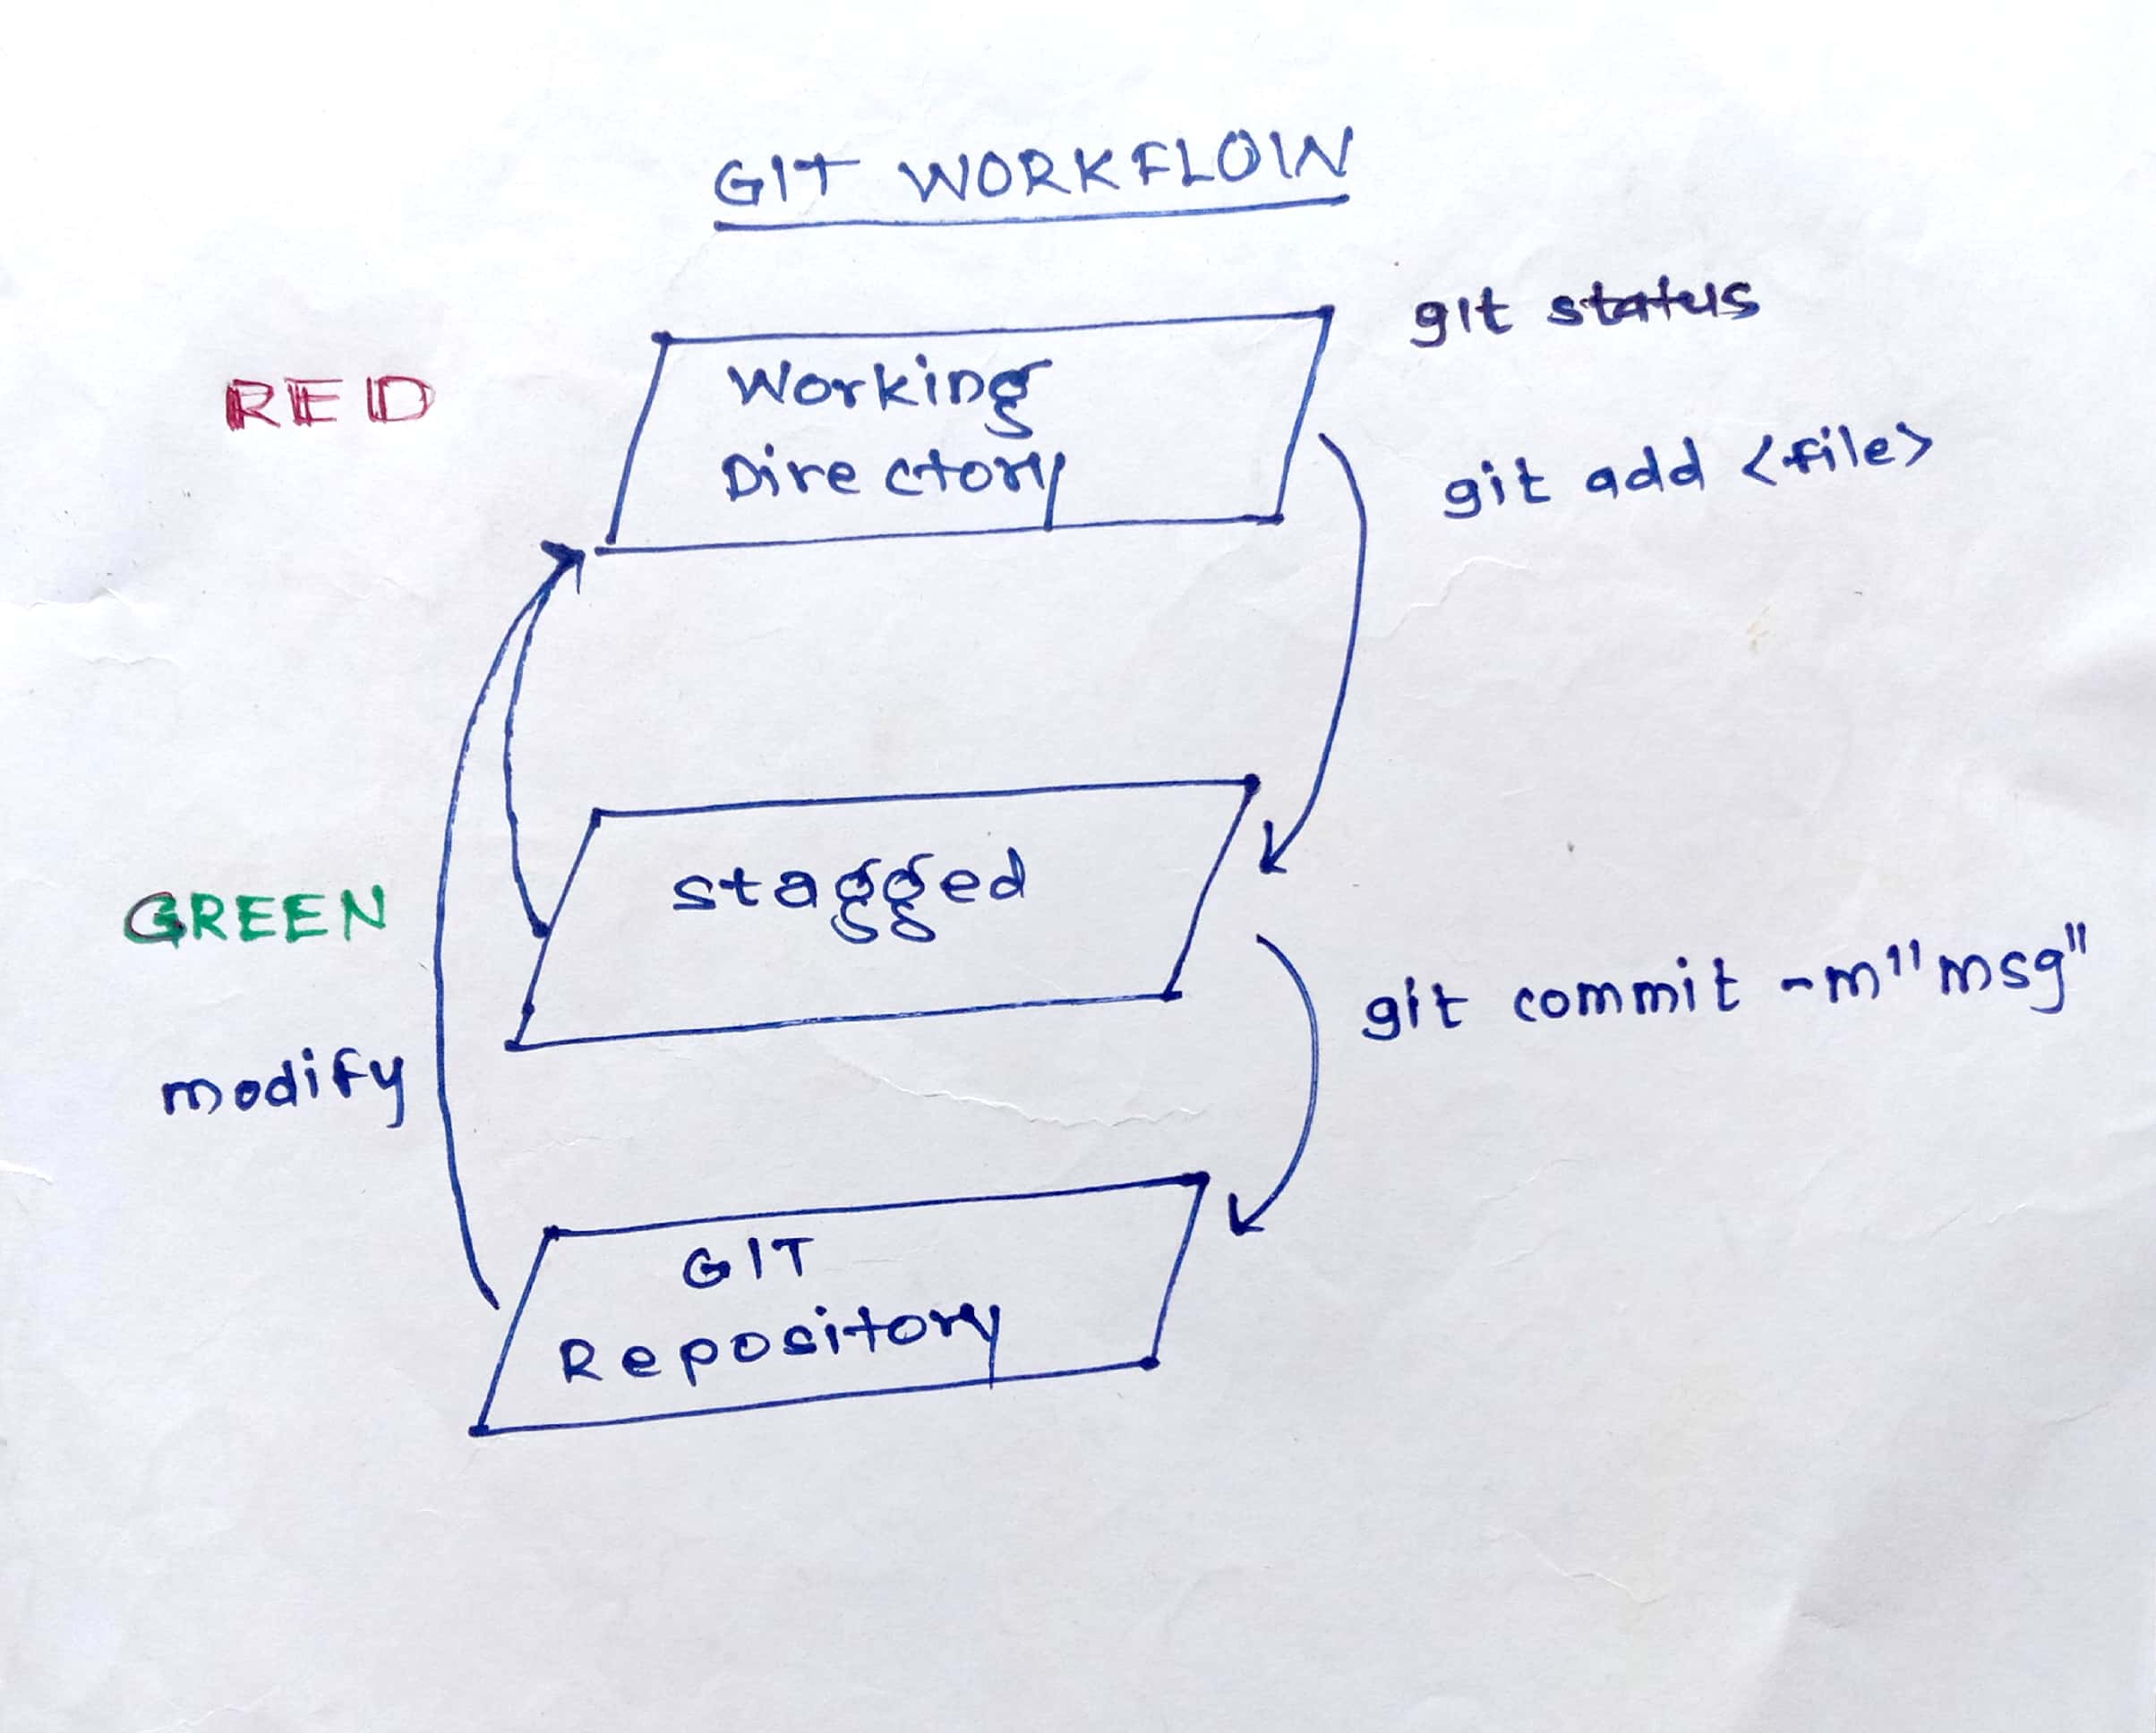 GIT WORKFLOW
git status
RED
Working
Directory
git add <file>
GREEN
stagged
git commit -m"msg"
modify
GIT
Repository